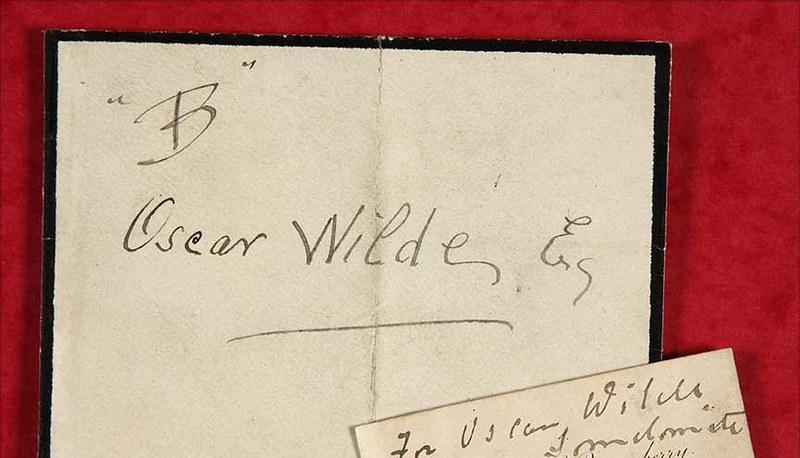 "B"
Oscar Wilde, Esq
For Oscar Wilde
Somdomite